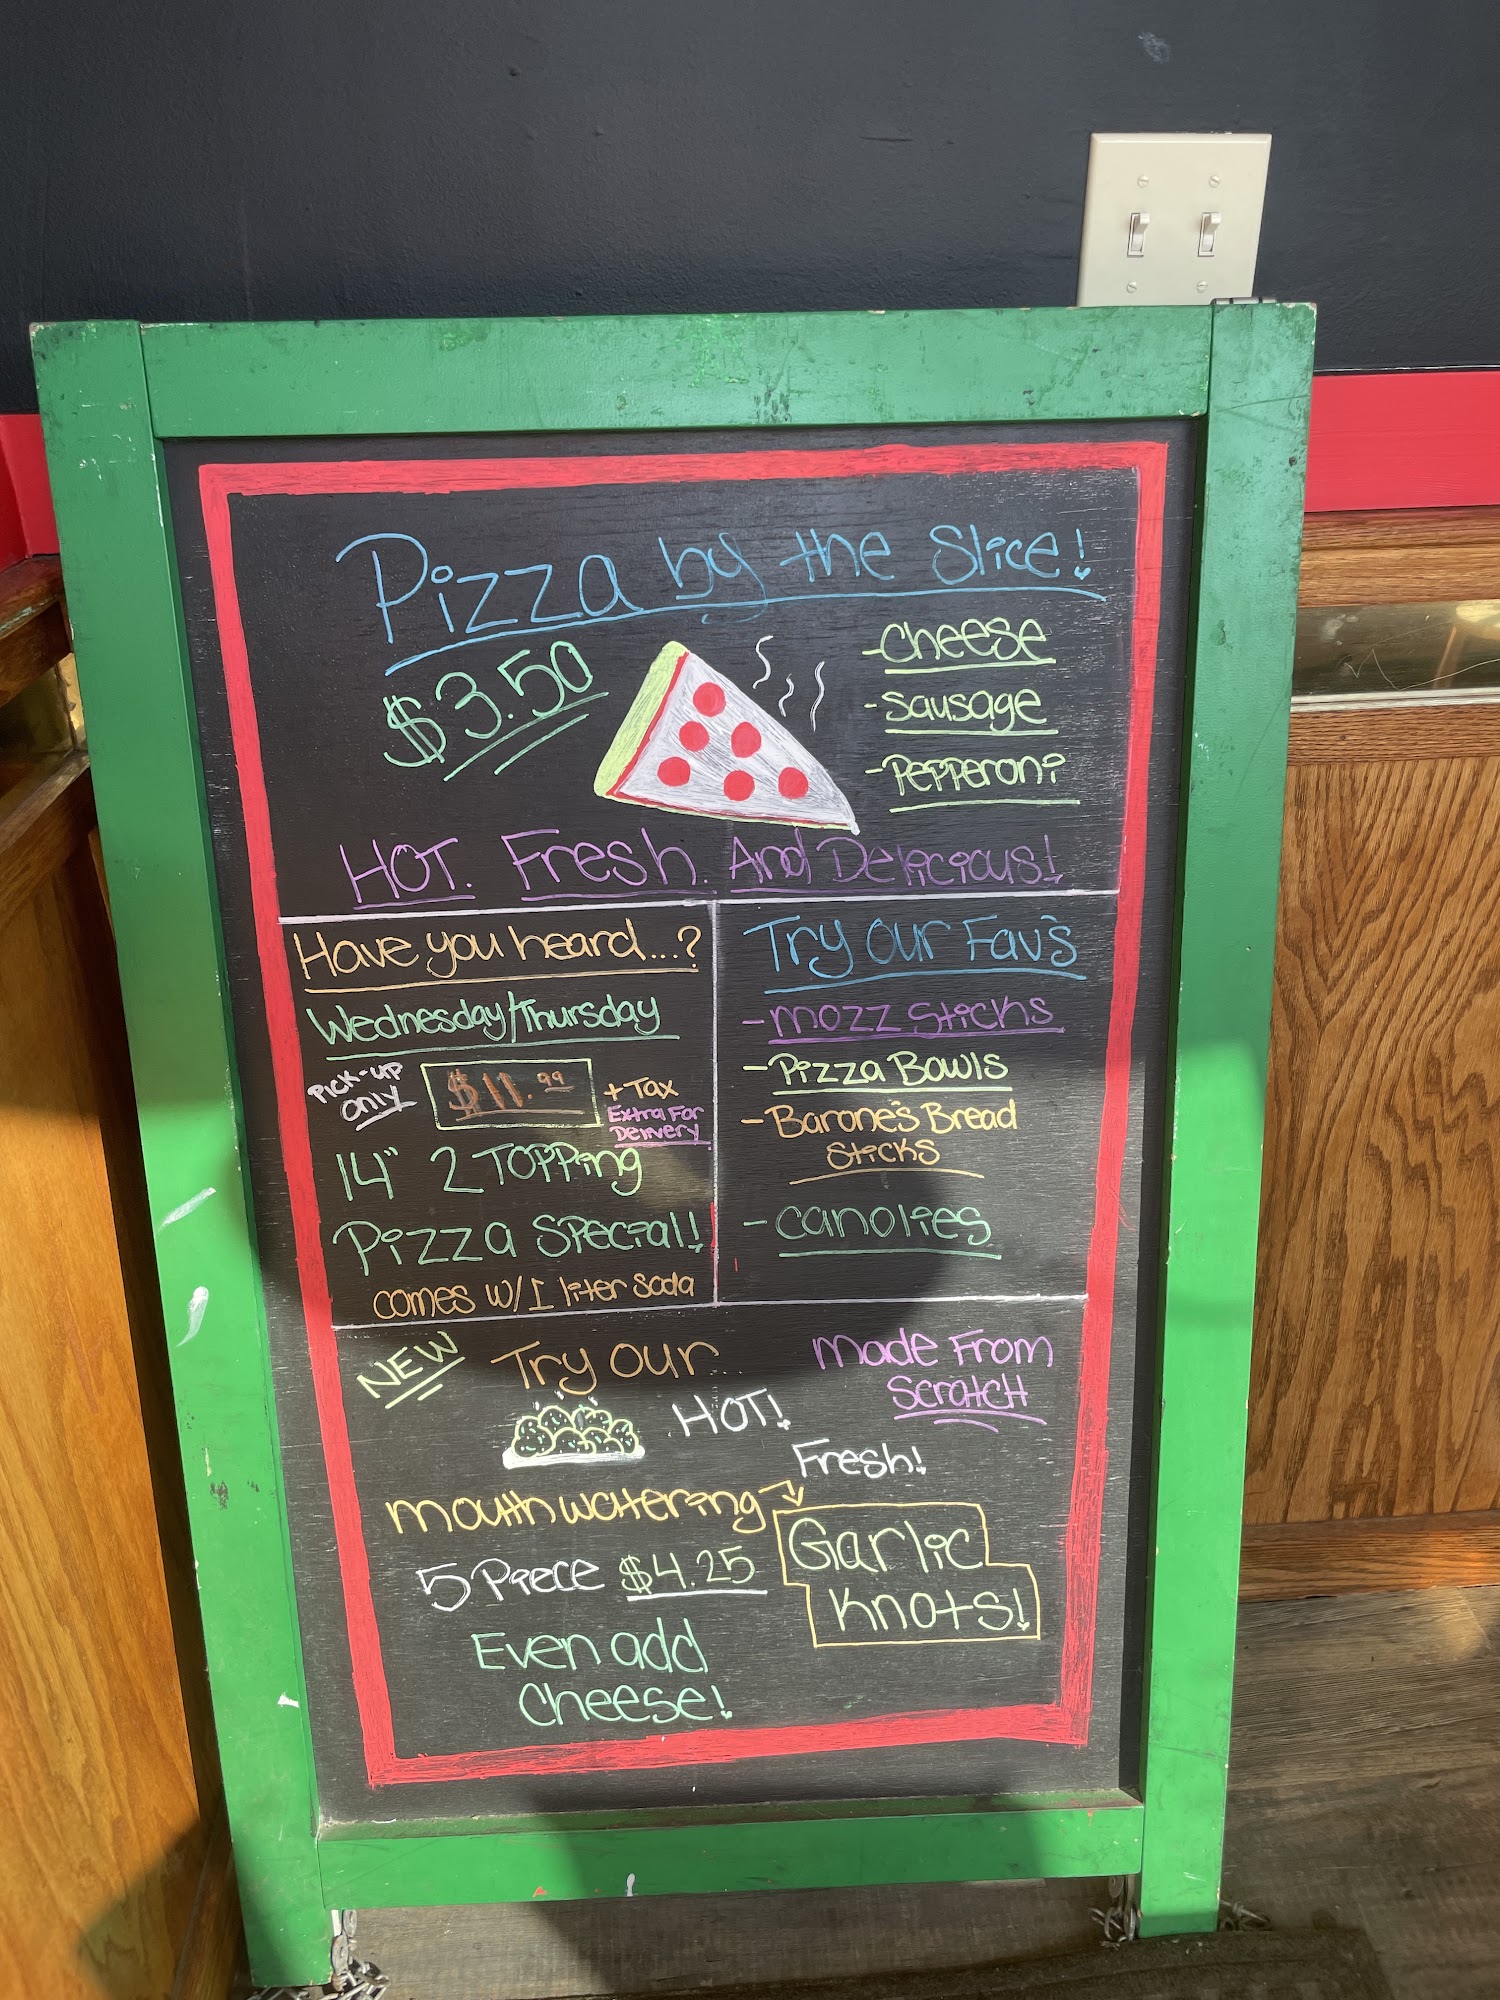 Pizza by the Slice!
$3.50
-Cheese
-Sausage
-Pepperoni
HOT. Fresh. And Delicious!
Have you heard...?
Wednesday/Thursday
Pick-up only
$11.99
+ Tax
Extra For Delivery
14" 2 Topping
Pizza Special!
comes w/ 1 liter soda
Try our Fav's
- Mozz Sticks
- Pizza Bowls
- Barone's Bread
Sticks
- Canolies
NEW
Try our
HOT!
Made From
Scratch
Fresh!
mouthwatering
Garlic
Knots!
5 Piece $4.25
Even add
Cheese!